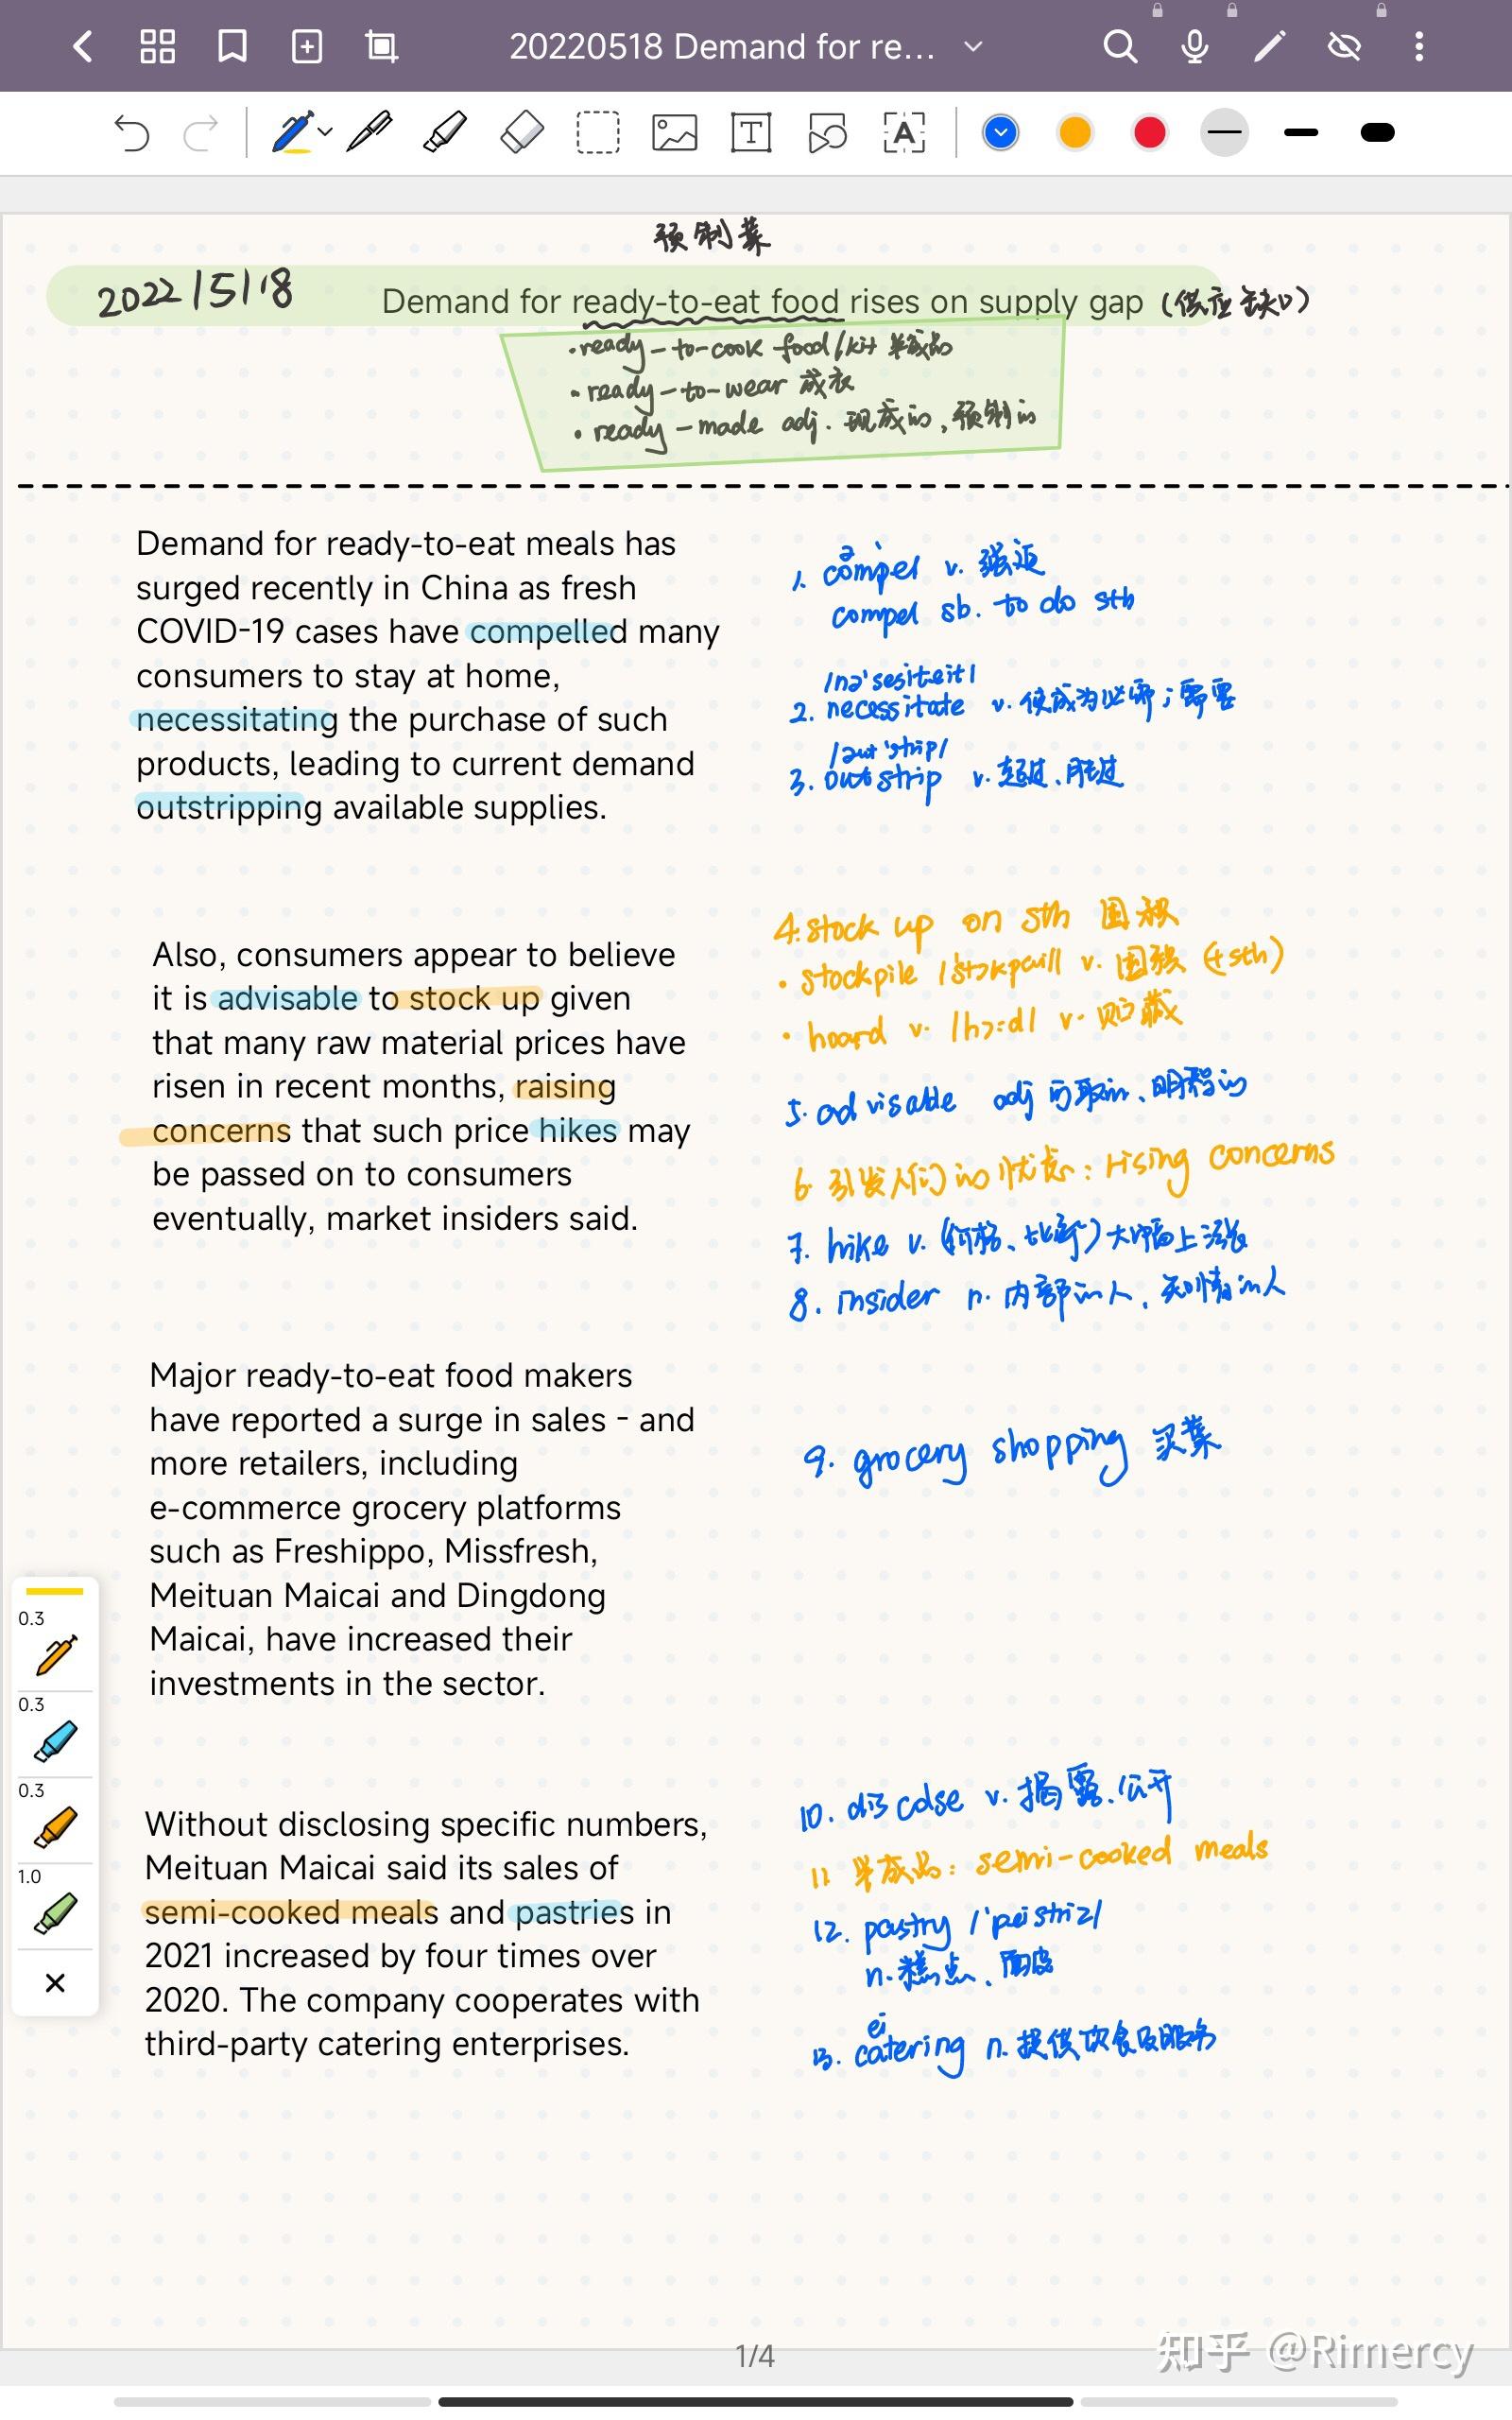 20220518 Demand for re...
预制菜
2022/5/18 Demand for ready-to-eat food rises on supply gap (供应缺口)
·ready-to-cook food/kit 半成品
·ready-to-wear 成衣
·ready-made adj. 现成的,预制的
Demand for ready-to-eat meals has
surged recently in China as fresh
COVID-19 cases have compelled many
consumers to stay at home,
necessitating the purchase of such
products, leading to current demand
outstripping available supplies.
ə
1. compel v. 强迫
compel sb. to do sth
/nə'sesiteit/
2. necessitate v. 使成为必需;需要
/aut'strip/
3. outstrip v. 超过、胜过
Also, consumers appear to believe
it is advisable to stock up given
that many raw material prices have
risen in recent months, raising
concerns that such price hikes may
be passed on to consumers
eventually, market insiders said.
4. stock up on sth 囤积
·stockpile /'stɔkpail/ v. 囤积 (+sth)
·hoard v. /hɔ:d/ v. 贮藏
5. advisable adj 可取的、明智的
6. 引发人们的忧虑: rising concerns
7. hike v. (价格、比率)大幅上涨
8. insider n. 内部的人、知情的人
Major ready-to-eat food makers
have reported a surge in sales - and
more retailers, including
e-commerce grocery platforms
such as Freshippo, Missfresh,
Meituan Maicai and Dingdong
Maicai, have increased their
investments in the sector.
9. grocery shopping 买菜
Without disclosing specific numbers,
Meituan Maicai said its sales of
semi-cooked meals and pastries in
2021 increased by four times over
2020. The company cooperates with
third-party catering enterprises.
10. disclose v. 揭露、公开
11 半成品: semi-cooked meals
12. pastry /'peistriz/
n. 糕点、面皮
ei
13. catering n. 提供饮食及服务
0.3
0.3
0.3
1.0
1/4
知乎 @Rimercy